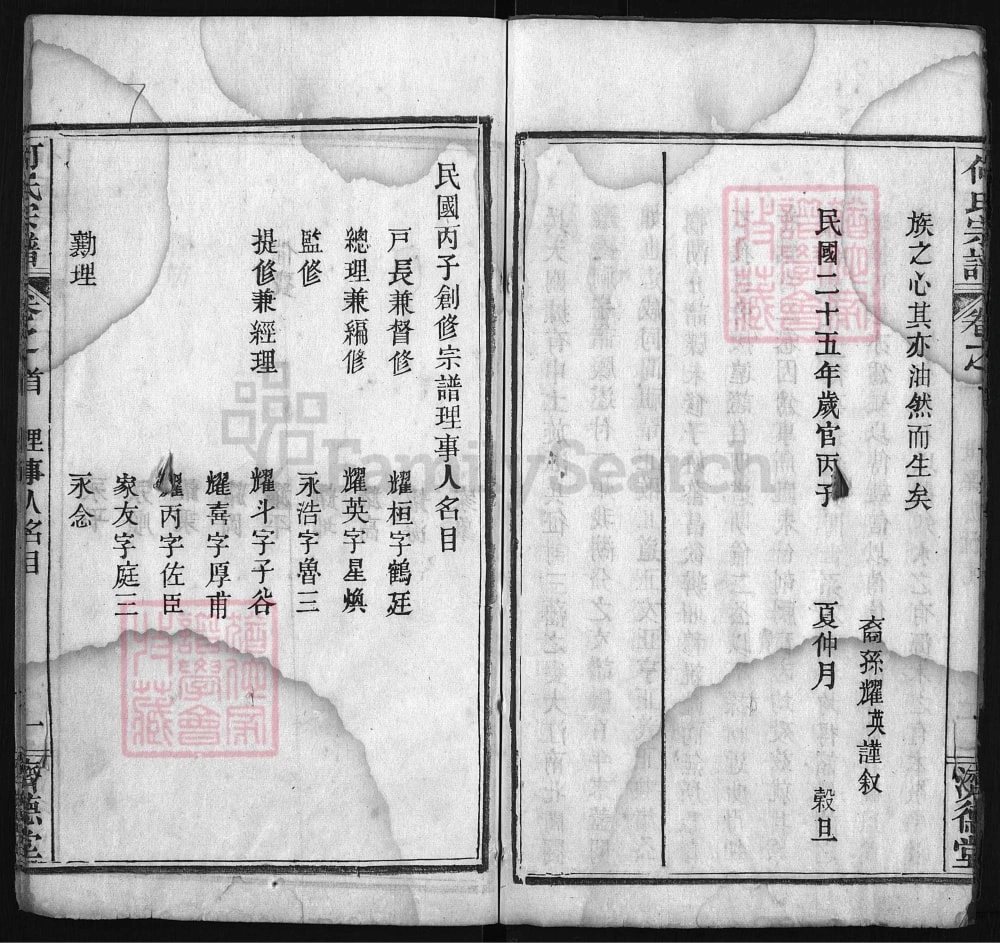 何氏宗譜
卷之
濟德堂
族之心其亦油然而生矣
裔孫耀英謹叙
民國二十五年歲官丙子 夏仲月 穀旦
民國丙子創修宗譜理事人名目
戸長兼督修 耀桓字鶴廷
總理兼編修 耀英字星煥
監修 永浩字魯三
提修兼經理 耀斗字子谷
耀喜字厚甫
耀丙字佐臣
家友字庭三
勷理 永念
何氏宗譜 卷之首 理事人名目 一 濟德堂
FamilySearch